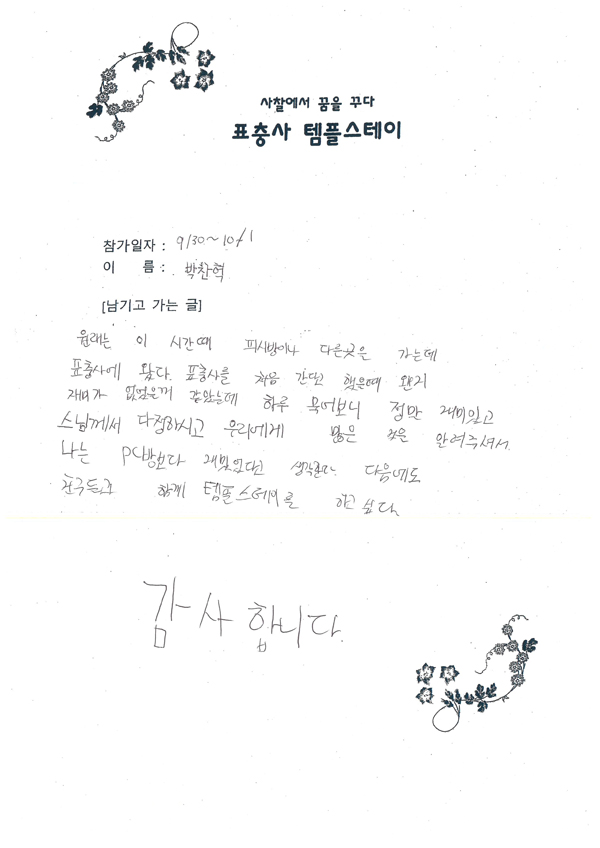 사찰에서 꿈을 꾸다
표충사 템플스테이
참가일자 : 9/30~10/1
이 름 : 박찬혁
[남기고 가는 글]
원래는 이 시간때 피시방이나 다른곳은 가는데
표충사에 왔다. 표충사를 처음 간다고 했을때 왠지
재미가 없었을꺼 같았는데 하루 묵어보니 정말 재미있고
스님께서 다정하시고 우리에게 많은 것은 알려주셔서
나는 PC방보다 재밌었다고 생각한다. 다음에도
친구들과 함께 템플스테이를 하고 싶다.
감사합니다.